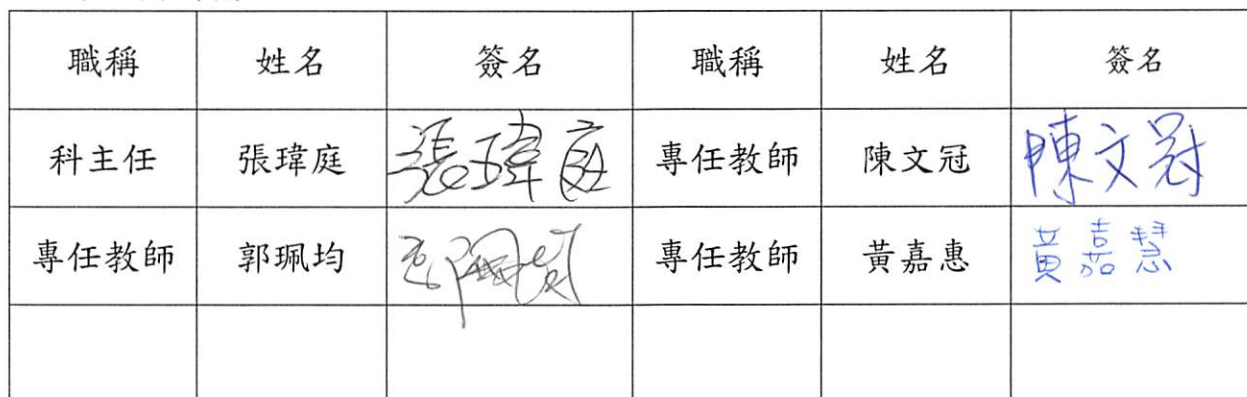 職稱 姓名 簽名 職稱 姓名 簽名
科主任 張瑋庭 張瑋庭 專任教師 陳文冠 陳文冠
專任教師 郭珮均 專任教師 黃嘉惠 黃嘉慧